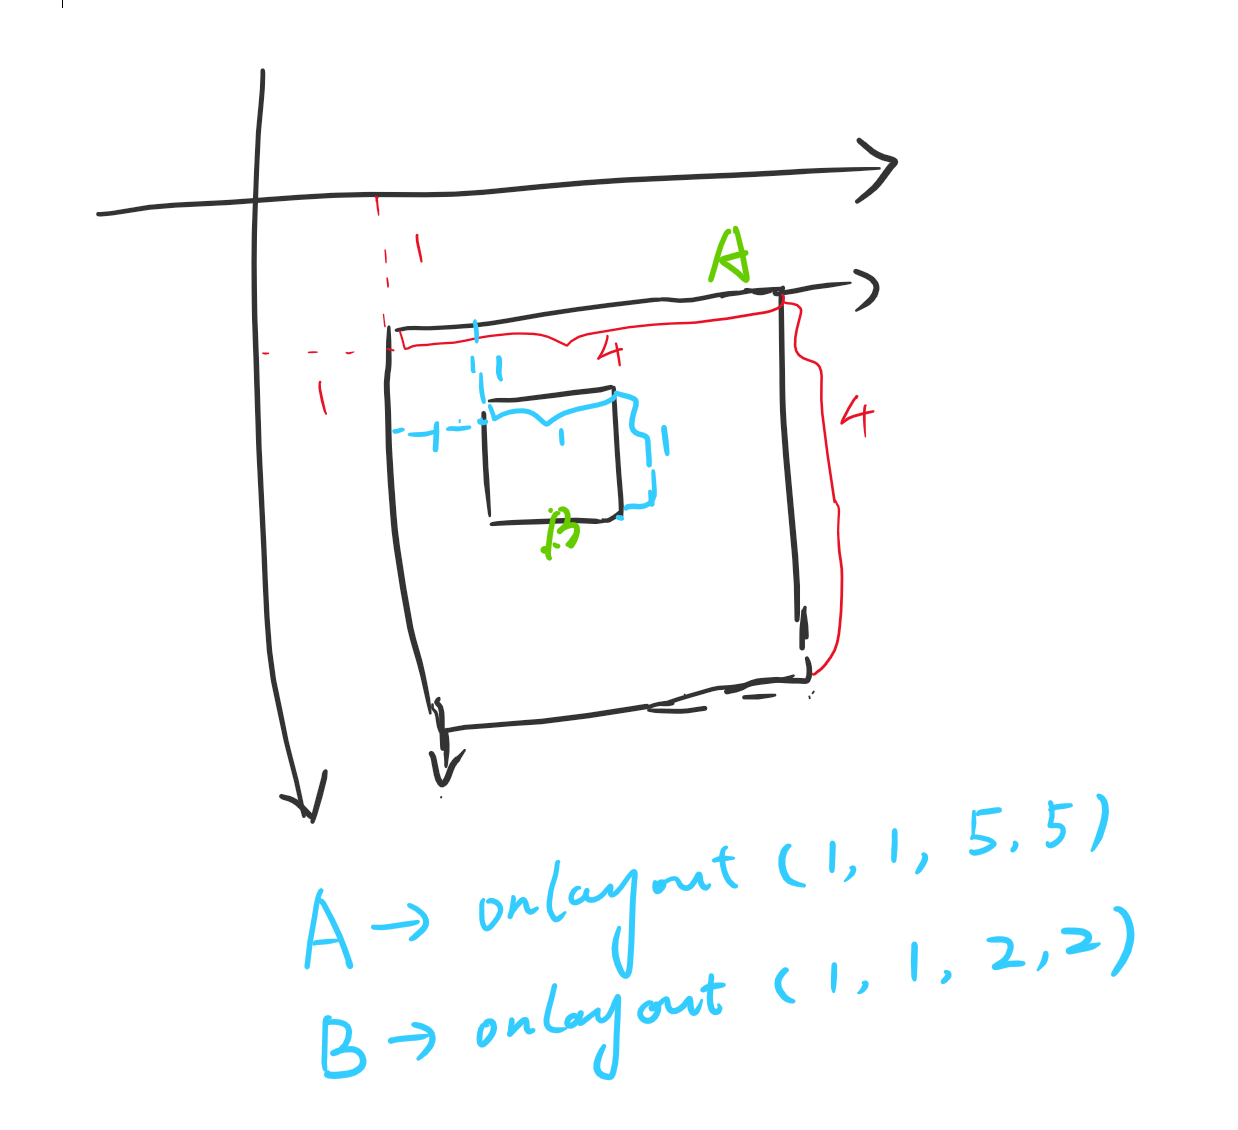 1
A
1
4
1
4
1
1
1
B
A → onlayout (1, 1, 5, 5)
B → onlayout (1, 1, 2, 2)